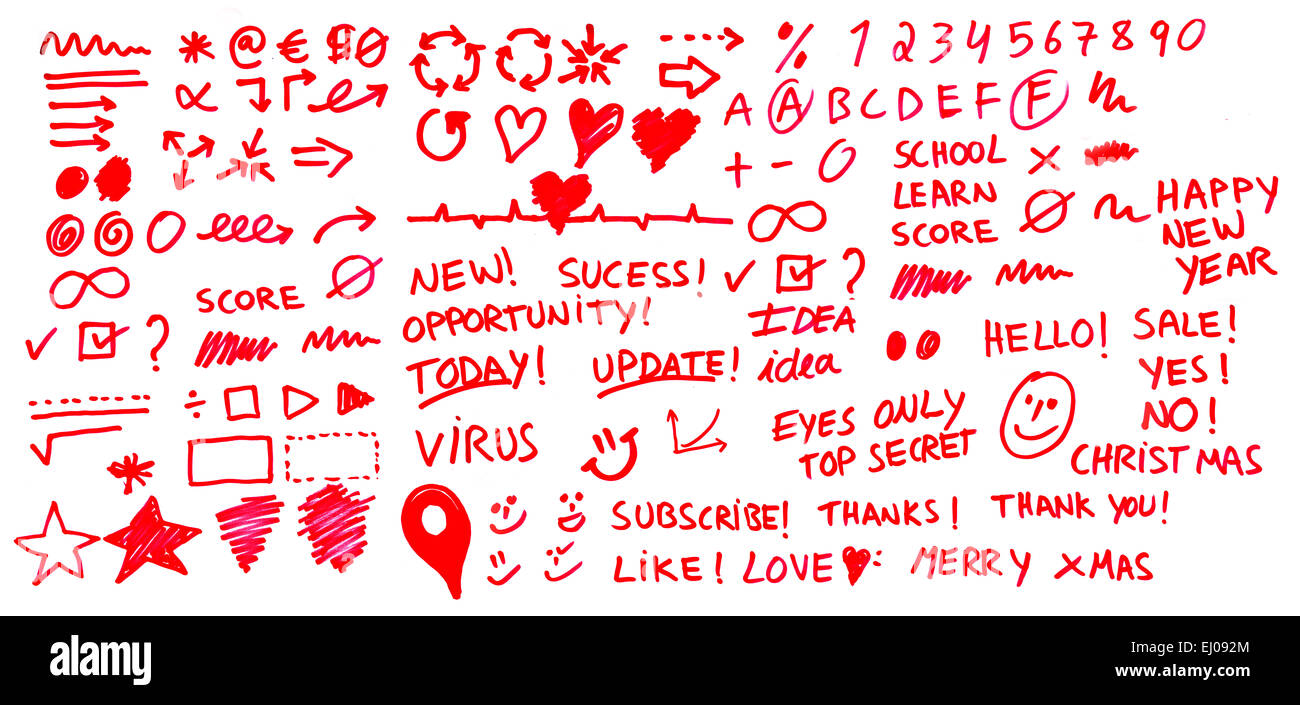 * @ € Ø
% 1 2 3 4 5 6 7 8 9 0
A A B C D E F F
+ - 0
SCHOOL
LEARN
SCORE
HAPPY
NEW
YEAR
SCORE Ø
NEW! SUCESS!
?
OPPORTUNITY!
TODAY! UPDATE!
IDEA
idea
HELLO!
SALE!
YES!
NO!
CHRISTMAS
?
÷
VIRUS
EYES ONLY
TOP SECRET
SUBSCRIBE! THANKS! THANK YOU!
LIKE! LOVE MERRY XMAS
alamy
Image ID: EJ092M
www.alamy.com